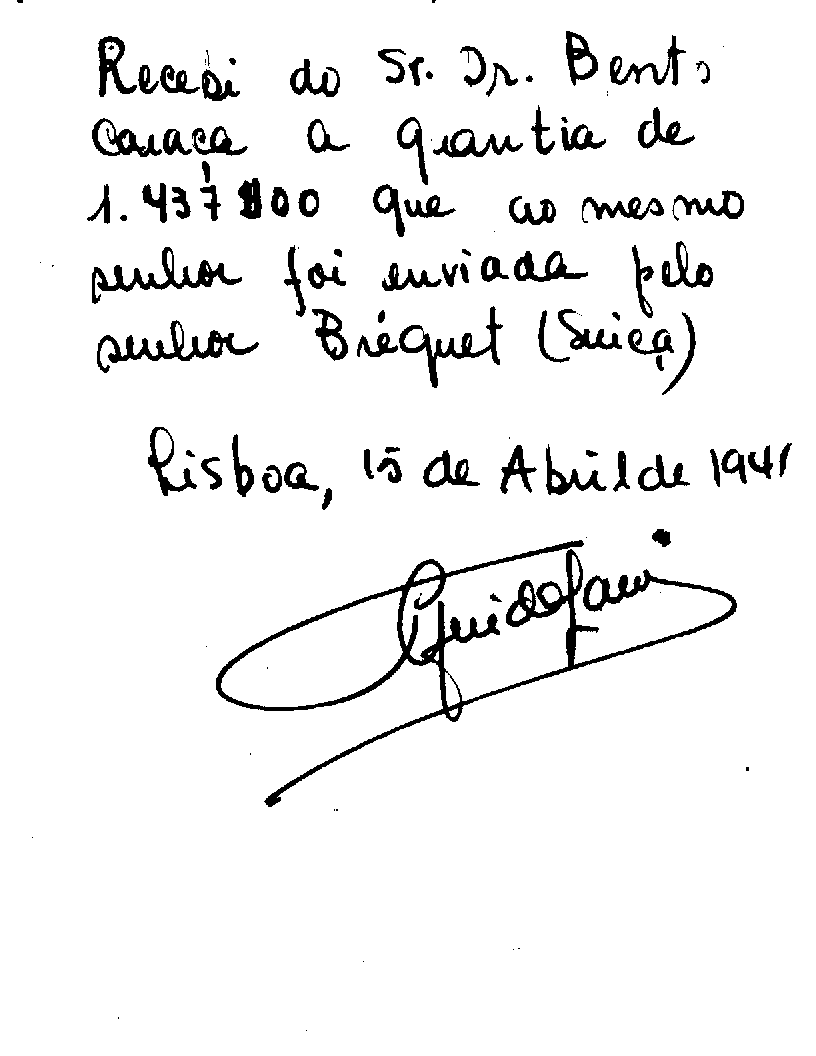 Recebi do Sr. Dr. Bento
Caraça a quantia de
1.437$00 que ao mesmo
senhor foi enviada pelo
senhor Bréguet (Suiça)
Lisboa, 15 de Abril de 1941